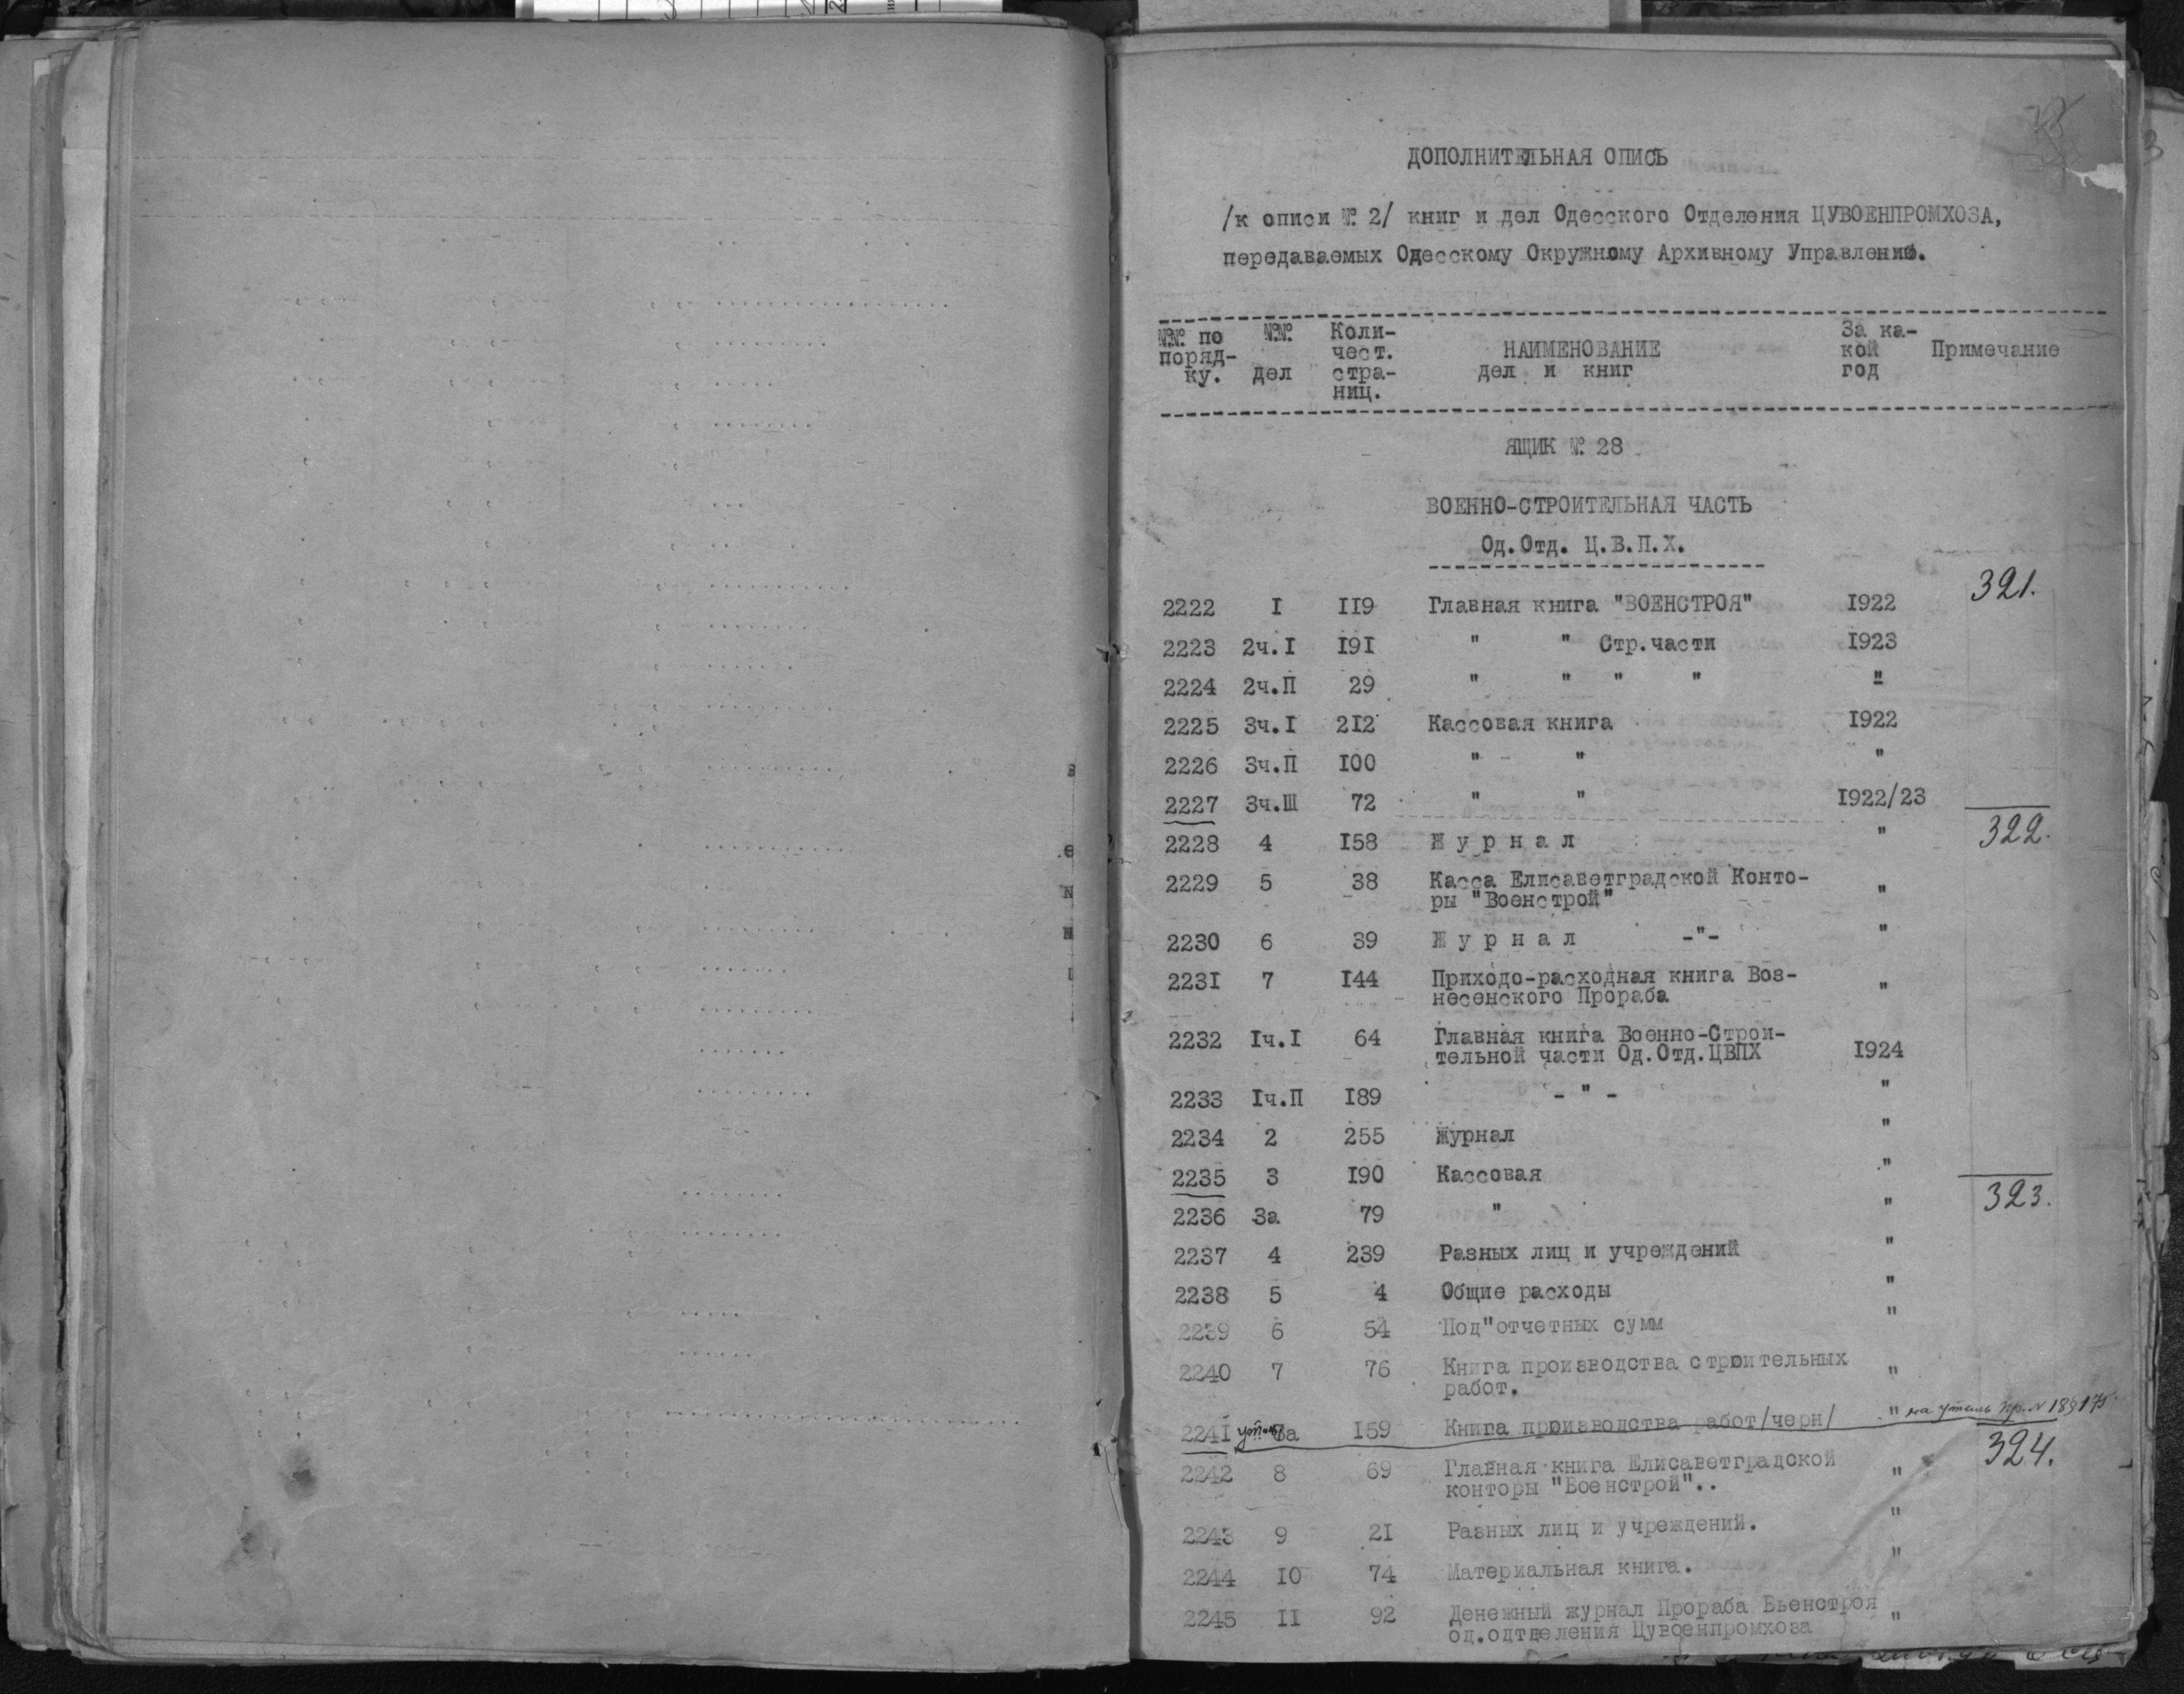 ДОПОЛНИТЕЛЬНАЯ ОПИСЬ
/к описи №. 2/ книг и дел Одесского Отделения ЦУВОЕНПРОМХОЗА,
передаваемых Одесскому Окружному Архивному Управлению.
№№ по поряд- ку. №№ дел Коли- чест. стра- ниц. НАИМЕНОВАНИЕ дел и книг За ка- кой год Примечание
ЯЩИК №. 28
ВОЕННО-СТРОИТЕЛЬНАЯ ЧАСТЬ
Од.Отд. Ц.В.П.Х.
2222 I II9 Главная книга "ВОЕНСТРОЯ" I922 321.
2223 2ч.I I9I " " Стр.части I923
2224 2ч.П 29 " " " " "
2225 3ч.I 2I2 Кассовая книга I922
2226 3ч.П I00 " " "
2227 3ч.Ш 72 " " I922/23
2228 4 I58 Журнал " 322.
2229 5 38 Касса Елисаветградской Конто-
ры "Военстрой" "
2230 6 39 Журнал -"- "
223I 7 I44 Приходо-расходная книга Воз-
несенского Прораба "
2232 Iч.I 64 Главная книга Военно-Строи-
тельной части Од.Отд.ЦВПХ I924
2233 Iч.П I89 - " - "
2234 2 255 Журнал "
2235 3 I90 Кассовая "
2236 3а 79 " " 323.
2237 4 239 Разных лиц и учреждений "
2238 5 4 Общие расходы "
2239 6 54 Под"отчетных сумм "
2240 7 76 Книга производства строительных
работ. "
224I 7а I59 Книга производства работ/черн/ " на утиль пр. N
2242 8 69 Главная книга Елисаветградской 324.
конторы "Военстрой".. "
2243 9 2I Разных лиц и учреждений. "
2244 I0 74 Материальная книга. "
2245 II 92 Денежный журнал Прораба Вьенстроя
од.одтделения Цувоенпромхоза "